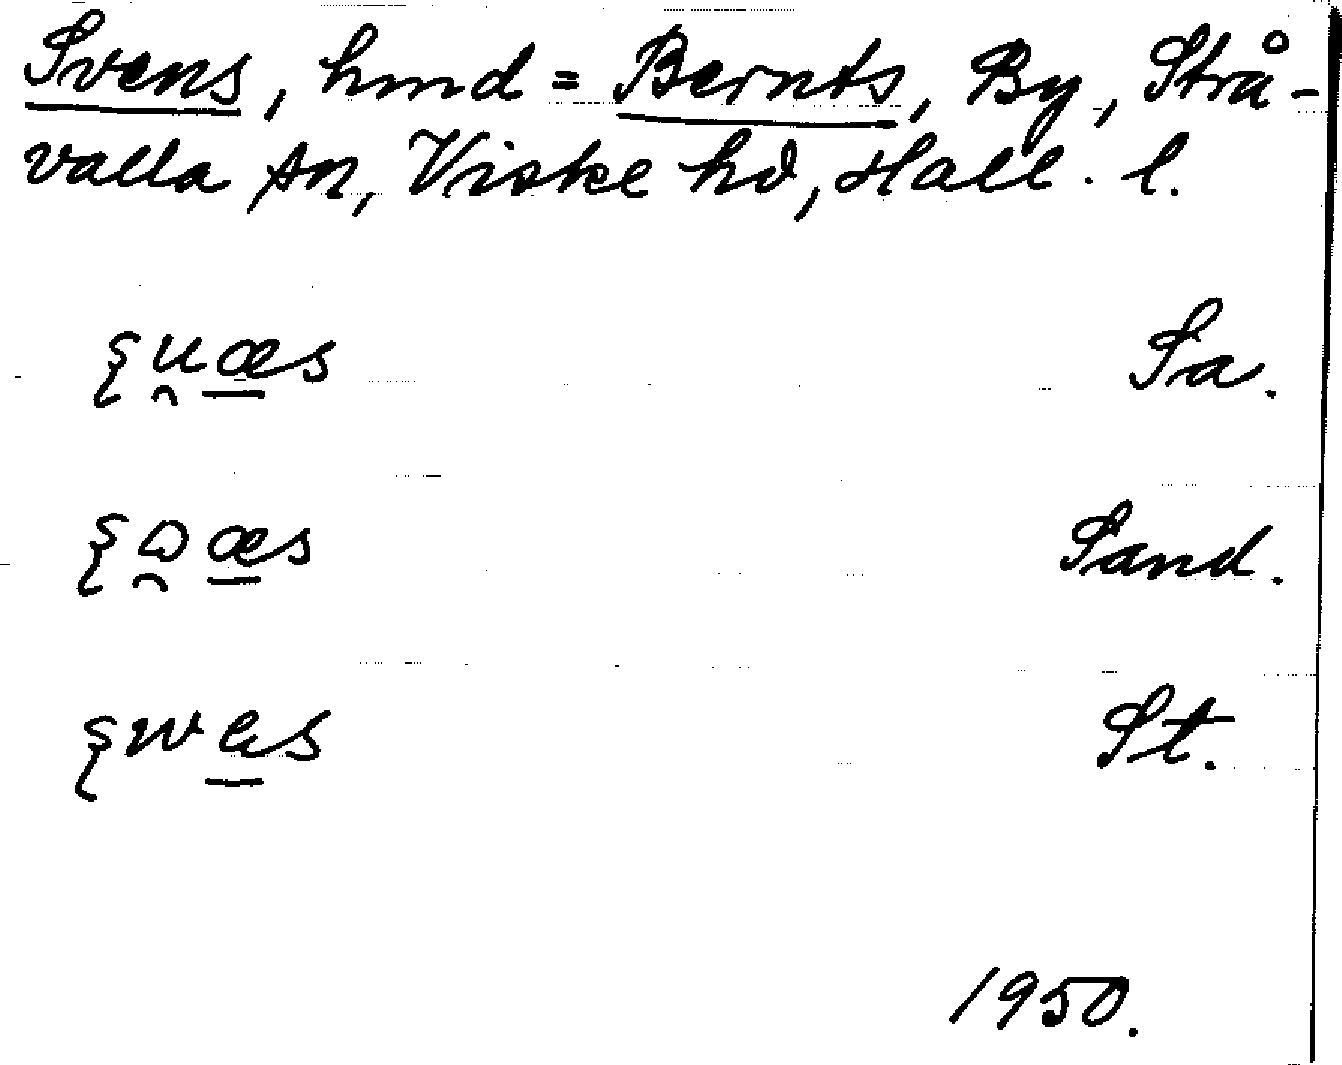 Svens, hmd = Bernts, By, Strå-
valla sn, Viske hd, Hall. l.
Sa.
Sand.
St.
1950.